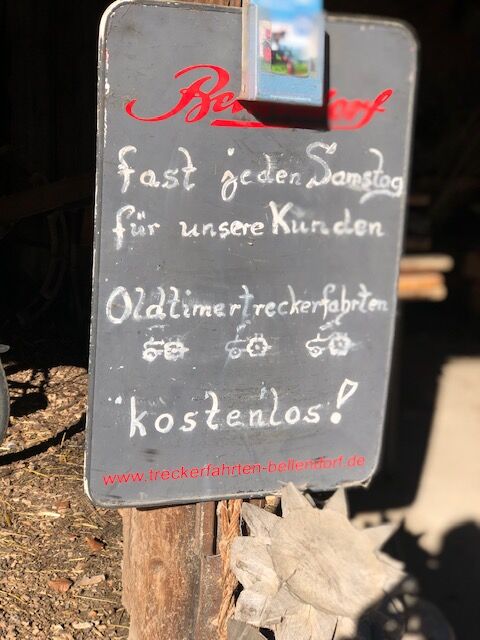 fast jeden Samstag
für unsere Kunden
Oldtimertreckerfahrten
kostenlos!
www.treckerfahrten-bellendorf.de